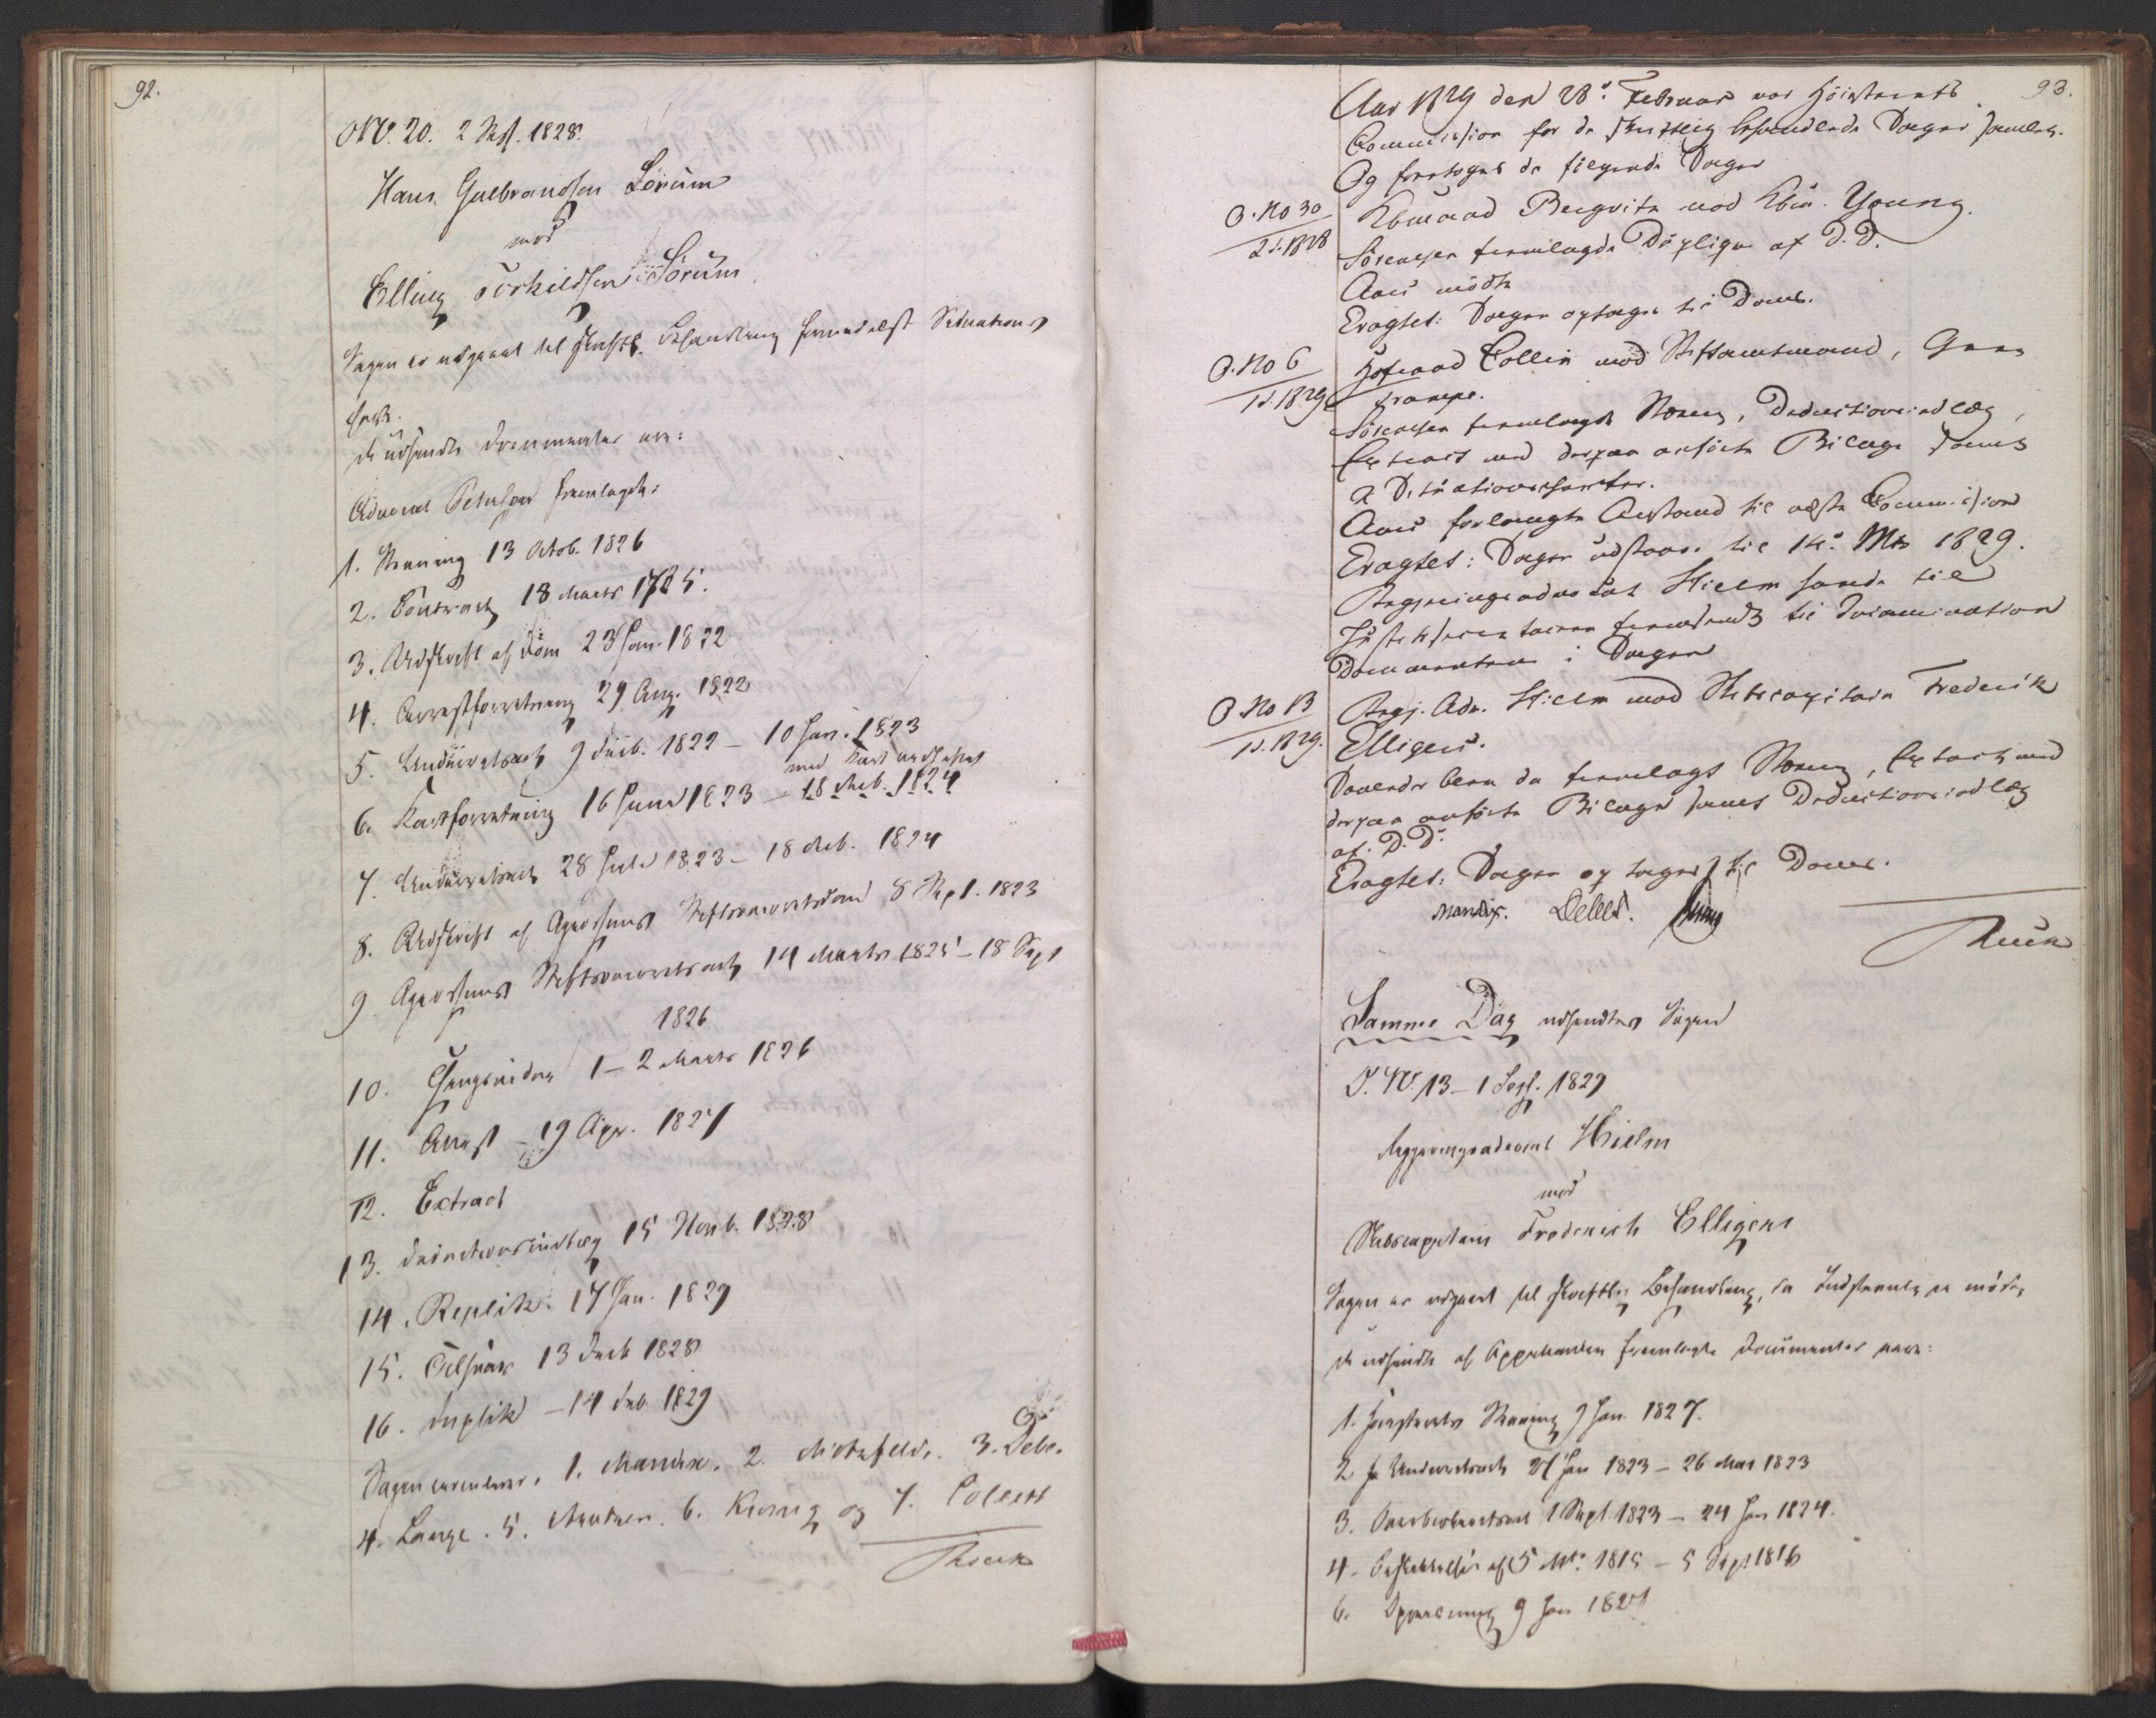 92.
No. 20. 2 Sess. 1828.
Hans Gulbrandsen Sörum
mod
Elling Torkildsen Sörum
Sagen er udgaaet til skriftl. Behandling formedelst Situations
Carte.
De udsendte Documenter ere:
Advocat Petersen fremlagde:
1. Stevning 13 Octob. 1826
2. Contract 18 Marts 1785.
3. Udskrift af Dom 23 Jan. 1822
4. Arrestforretning 29 Aug. 1822
5. Underretsact 9 Decb. 1822 – 10 Jan. 1823
6. Kartforretning 16 Juni 1823 – 18 Feb. 1824
7. Underretsact 28 Juli 1823 – 18 Feb. 1824
8. Udskrift af Agershuus Stiftsoverretsdom 8 Sept. 1823
9 Agershuus Stiftsoverretsact 14 Marts 1825 – 18 Sept
1826
10. 1 – 2 Marts 1826
11. Attest – 19 Apr. 1827
12. Extract
13. Deductionsindlæg 15 Novb. 1828
14. Replik 17 Jan. 1829
15. Tilsvar 13 Decb 1828
16. Duplik – 14 Feb 1829
Sagen circulerer. 1. Mandix. 2. Motzfeldt. 3. Debes
4. Lange. 5. 6. og 7. Collett
93.
Aar 1829 den 28de Februar var Höiesterets
Commission for de skriftlig behandlede Sager samlet.
Og foretoges da fölgende Sager
O. No 30
2 S. 1828
Kbmand Bergwitz mod Kbm. Young.
Sörensen fremlagde Duplique af D. D.
Aars mödte
Eragtet: Sagen optages til Doms.
O. No 6
1 S. 1829
Hofraad Collin mod Stiftamtmand, Grev
Trampe.
Sörensen fremlagde Stevng, Deductionsindlæg,
Extract med derpaa anförte Bilage samt
2 Situationscharter.
Aars forlangte Anstand til næste Commission
Eragtet: Sagen udstaaer til 14de Mts 1829.
Regjeringsadvocat Hielm havde til
Justitssecretairen fremsendt til Examination
Documenterne i Sagen
O. No 13
1 S. 1829.
Regj. Adv. Hielm mod Stabscapitain Frederik
Elligers.
Sammesteds blev da fremlagt Stevng, Extract med
derpaa anförte Bilage samt Deductionsindlæg
af D. D.
Eragtet: Sagen optages til Doms.
Mandix. Debes.
Samme Dag udsendtes Sagen
O. No. 13 – 1 Sess. 1829
Regjeringsadvocat Hielm
mod
Stabscapitain Frederich Elligers
Sagen er udgaaet til skriftlig Behandling, da Indstevnte ei mödte
De udsendte af Appellanten fremlagte Documenter vare:
1. Höiesterets Stevning 9 Jan. 1827.
2 Underretsact 27 Jan 1823 – 26 Mai 1823
3. 1 Sept. 1823 – 24 Jan 1824.
4. af 5 Mts. 1815 – 5 Sept 1816
6. 9 Jan 1827